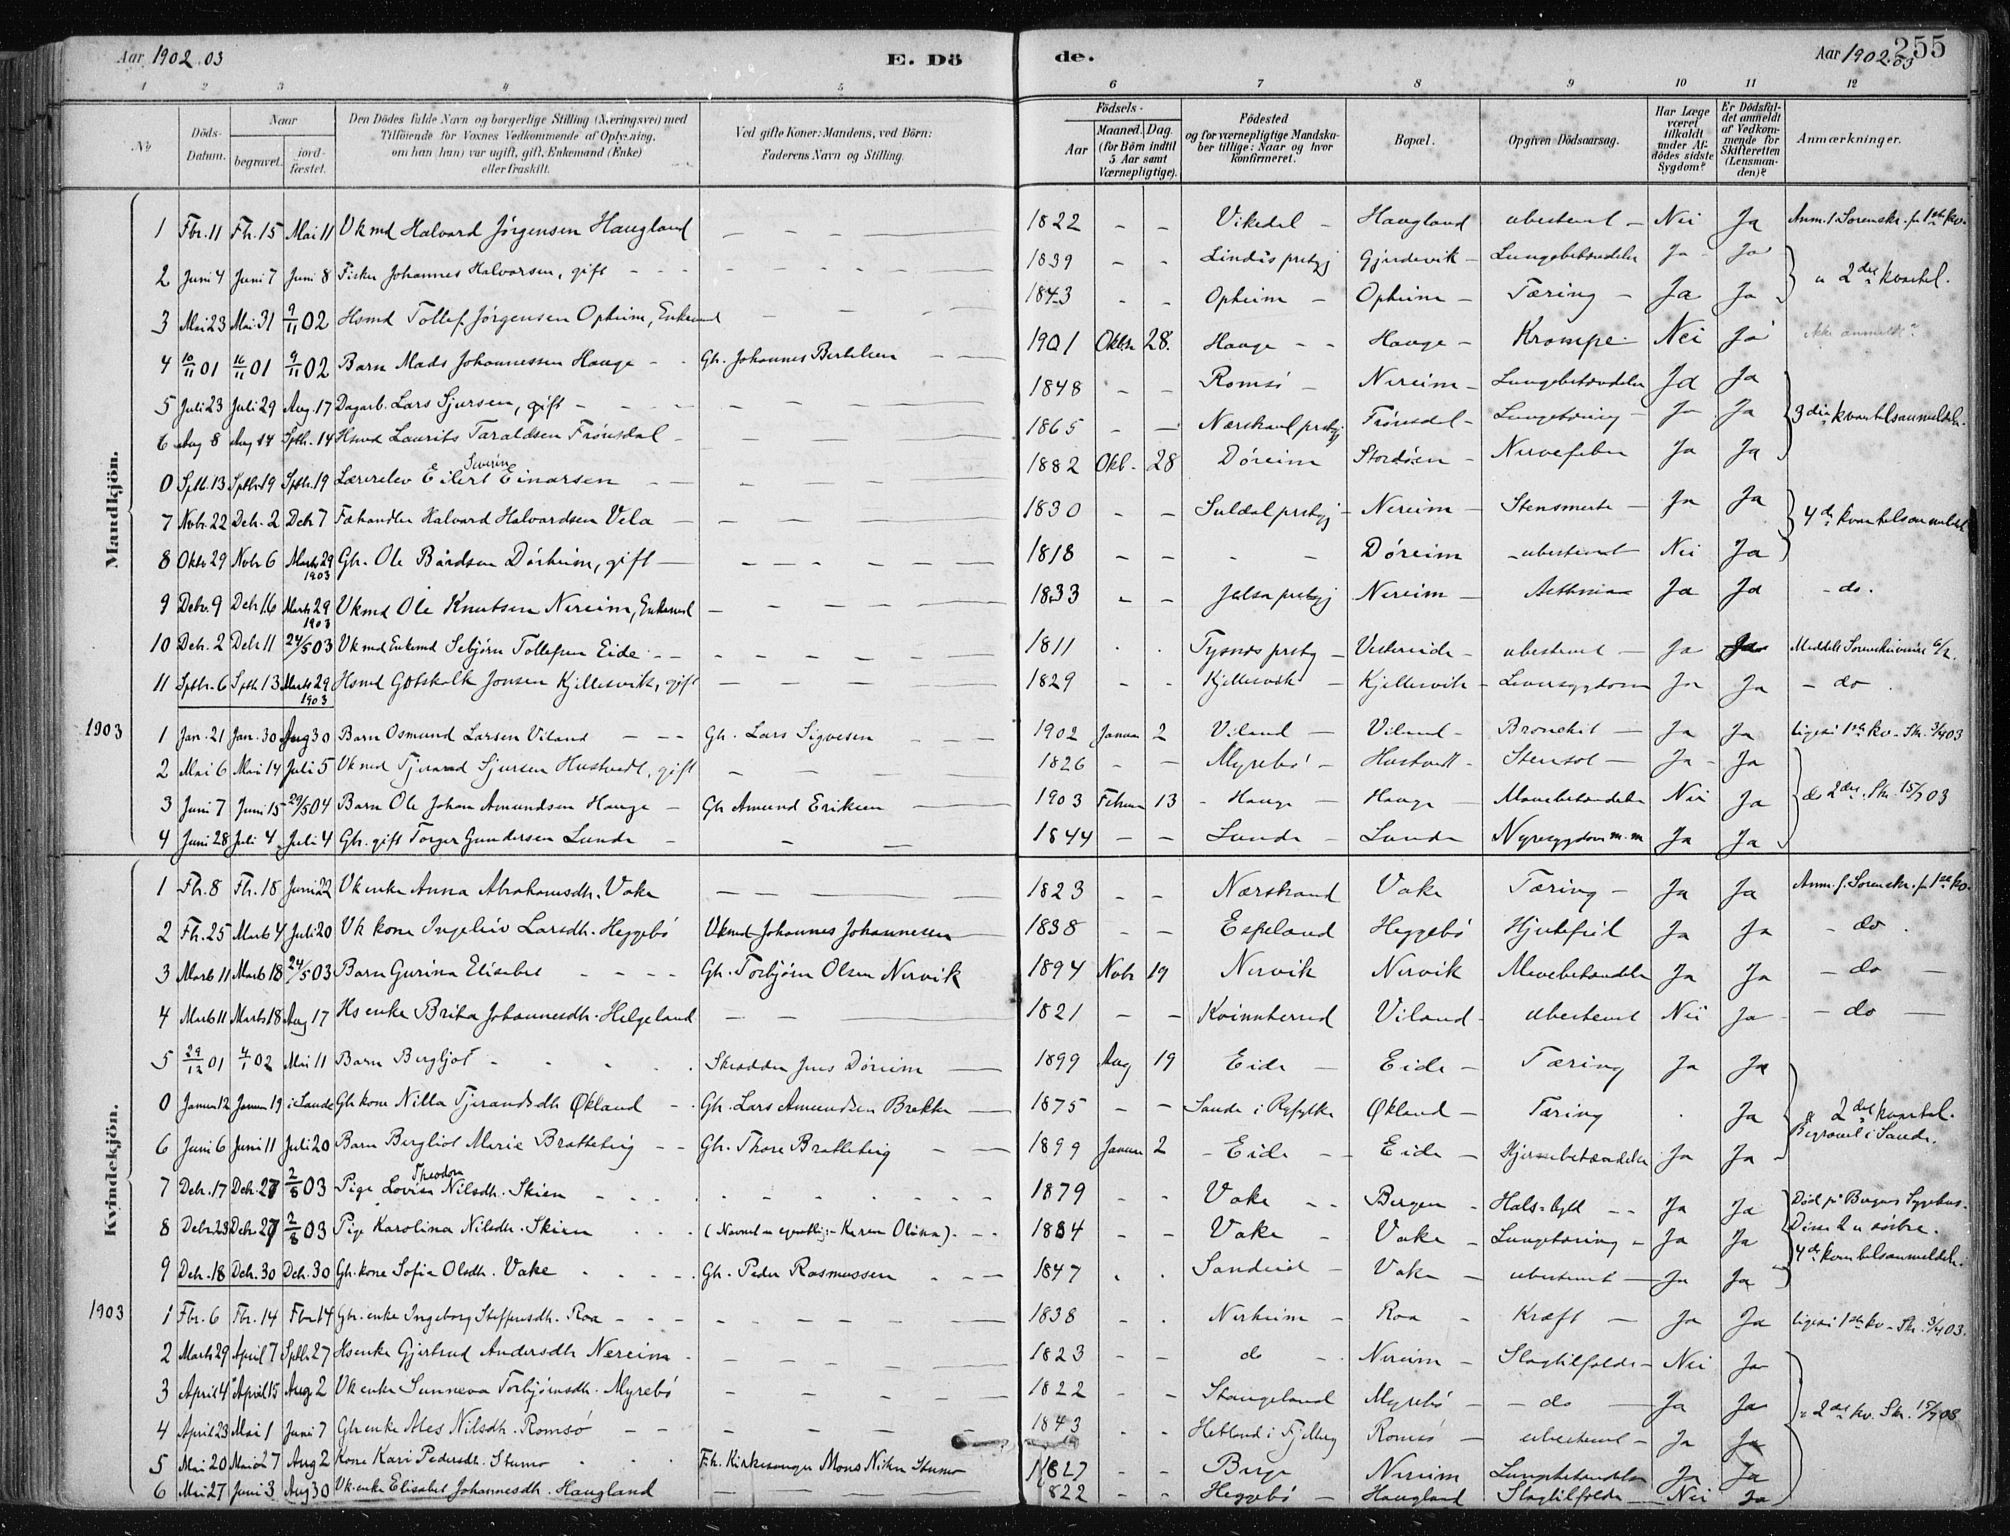 Aar 1902.03 E. Dö de. Aar 1902.03 255
1 2 3 4 5 6 7 8 9 10 11 12
No
Döds-Datum.
Naar begravet. jordfæstet.
Den Dödes fulde Navn og borgerlige Stilling (Næringsvei) med Tilföiende for Voxnes Vedkommende af Oplysning, om han (hun) var ugift, gift, Enkemand (Enke) eller fraskilt.
Ved gifte Koner: Mandens, ved Börn: Faderens Navn og Stilling.
Födsels-
Aar Maaned. Dag. (for Börn indtil 5 Aar samt Værnepligtige).
Födested og for værnepligtige Mandskaber tillige: Naar og hvor konfirmeret.
Bopæl.
Opgiven Dödsaarsag.
Har Læge været tilkaldt under Afdödes sidste Sygdom?
Er Dödsfaldet anmeldt af Vedkommende for Skifteretten (Lensmanden)?
Anmærkninger.
Mandkjön.
1 Fbr. 11 Fb. 15 Mai 11 Vkmd Halvard Jørgensen Haugland — — — 1822 - - Vikedal - Haugland ubestemt - Nei Ja Anm. t. Sorenskr. f. 1ste kv.
2 Juni 4 Juni 7 Juni 8 Fisker Johannes Halvorsen, gift 1839 - - Lindås prstgj Gjerdevik - Lungebetændelse Ja Ja
3 Mai 23 Mai 31 9/11 02 Hsmd Tollef Jørgensen Opheim, Enkemd 1843 - - Opheim - Opheim - Tæring - Ja Ja " 2det kvartal.
4 10/11 01 16/11 01 9/11 02 Barn Mads Johannessen Hauge - Gb. Johannes Bertelsen 1901 Oktbr 28. Hauge - - Hauge - Krampe - Nei Ja ikke anmeldt?
5 Juli 23 Juli 29 Aug. 17 Dagarb. Lars Sjursen, gift - 1848 - - Romsö - Nereim - Lungebetændelse Ja Ja
6 Aug 8 Aug 14 Sptb. 14 Hsmd Laurits Taraldsen Frönsdal - 1865 - - Nærstrand prstgj Frönsdal - Lungetæring - Ja Ja 3die kvartalsanmeldelse
0 Sptb. 13 Sptbr 19 Sptb. 19 Lærerelev Eilert Severin Einarsen 1882 Okt. 28 Döreim Stordöen - Nervefeber Ja Ja
7 Nvbr. 22 Debr. 2 Debr 7 Fæhandler Halvard Halvardsen Vela - 1830 - - Suldal prstgj - Nereim - Stensmerte - Ja Ja
8 Oktbr 29 Nvbr 6 Marts 29 1903 Gb. Ole Bårdsen Dörheim, gift - 1818 - - - - Döreim - ubestemt Nei Ja 4de kvartalsanmeldelse
9 Debr. 9 Debr 16 Marts 29 1903 Vkmd Ole Knutsen Nereim, Enkemd - 1833 - - Jelsa prstgj Nereim - Asthma Ja Ja - do.
10 Debr. 2 Debr 11 24/5 03 Vkmd Enkemd Sebjörn Tollefsen Eide - - 1811 . . Tysnæs prstg - Vestereide - ubestemt - Ja Ja Meddelt Sorenskriveren 6/2.
11 Sptbr. 6 Sptb 13 Marts 29 1903 Hsmd Gotskalk Jonsen Kjellesvik, gift - 1829 - - Kjellesvik - Kjellesvik - Leversygdom Ja Ja - do.
1903
1 Jan. 21 Jan. 30 Aug 30 Barn Osmund Larsen Viland - - Gb. Lars Sigvesen 1902 Januar 2 Viland - Viland - Bronchit - Ja Ja ligesaa 1ste kv. Skr. 3/4 03
2 Mai 6 Mai 14 Juli 5 Vkmd Tjerand Sjursen Hustvedt, gift 1826 - - Myrebö - Hustvedt - Stensot - Ja - Ja
3 Juni 7 Juni 15 29/5 04 Barn Ole Johan Amundsen Hauge - Gb Amund Eriksen 1903 Februar 13 - Hauge - Hauge - Mavebetændelse Nei Ja do 2det. Skr. 15/7 03
4 Juni 28 Juli 4 Juli 4 Gb. gift Torger Gundersen Lunde - 1844 - - Lunde - Lunde Nyresygdom m.m Ja Ja
Kvindekjön.
1 Fb. 8 Fb. 18 Juni 22 Vk enke Anna Abrahamsdh. Vake 1823 - - Nærstrand Vake Tæring - Ja Ja Anm. f. Sorenskr. f. 1ste kv.
2 Fb. 25 Marts 4 Juli 20 Vk kone Ingeleiv Larsdh. Heggebö Vkmd Johannes Johannessen 1838 - - Espeland Heggebö Hjertefeil Ja Ja - do.
3 Marts 11 Marts 18 24/5 03 Barn Gurina Elisabet - - - - Gb. Torbjörn Olsen Nervik 1894 Nvbr 19 Nervik Nervik Mavebetændelse Ja Ja - do -
4 Marts 11 Marts 18 Aug 17 Hs enke Brita Johannesdh. Helgeland - - 1821 - - Kvinnherred Viland - ubestemt Nei Ja - do -
5 29/12 01 4/1 02 Mai 11 Barn Bergljot - Skrædder Jens Döreim 1899 Aug 19 Eide - Eide - Tæring Ja Ja
0 Januar 12 Januar 19 i Sande Gb kone Nilla Tjerandsdh Økland - Gb. Lars Amundsen Brekke 1875 - - Sande i Ryfylke Økland - Tæring . Ja " 2det kvartal. Begravet i Sande.
6 Juni 6 Juni 11 Juli 20 Barn Bergliot Marie Bratteteig - - Gb. Thore Bratteteig 1899 Januar 2 - Eide - - Eide - Hjernebetændelse Ja Ja
7 Debr. 17 Debr. 27 2/8 03 Pige Lovise Theodora Nilsdh. Skien 1879 - - Vake - - Bergen - Hals-byld - - Ja Ja Död på Bergens Sygehus.
8 Debr 23 Debr 27 2/8 03 Pige Karolina Nilsdh. Skien (Navnet er egentlig: Karen Olina) 1884 - - Vake - Vake - Lungetæring - Ja Ja Disse 2 er söstre.
9 Debr. 18 Debr. 30 Debr. 30 Gb. kone Sofia Olsdh. Vake Gb. Peder Rasmussen 1847 . . Sandeid - Vake - ubestemt - Ja Ja 4de kvartalsanmeldelse.
1903
1 Fbr. 6 Fbr. 14 Fbr 14 Gb. enke Ingeborg Steffensdh. Roa 1838 - . Nerheim - Roa - Kræft - Ja Ja ligesaa 1ste kv - Skr. 3/4 03.
2 Marts 29 April 7 Sptb 27 Hs enke Gjertrud Andersdh Nereim 1823 - - do - Nereim - Slagtilfælde - Nei Ja
3 April 4 April 15 Aug. 2 Vk enke Sunneva Torbjörnsdh. Myrebö 1822 - - Stangeland Myrebö - do - Ja Ja
4 April 23 Mai 1 Juni 7 Gb enke Ales Nilsdh. Romsö 1843 - - Hetland i Fjelberg Romsö - ubestemt - Ja Ja " 2det kv. Skr. 15/7 03
5 Mai 20 Mai 27 Aug 2 Kone Kari Pedersdh. Stumo Fh. Kirkesanger Mons Nilsen Stumo 1827 - - Berge Nereim Lungebetændelse Ja Ja
6 Mai 27 Juni 3 Aug 30 Vk. enke Elisabet Johannesdh. Haugland 1822 - - Heggebö - Haugland Slagtilfælde - Nei Ja